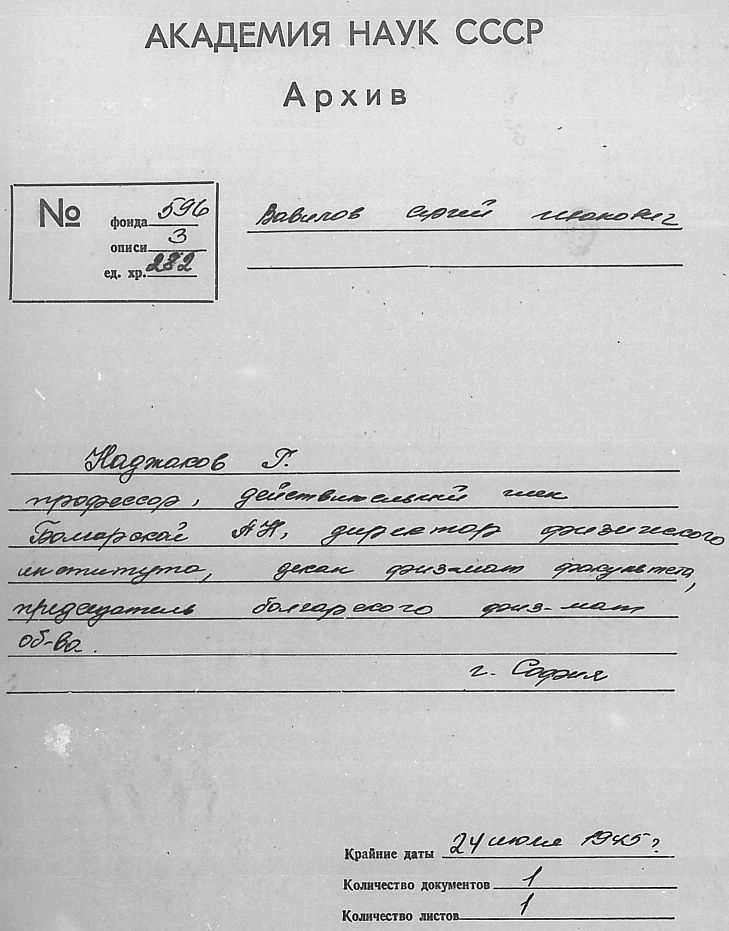 АКАДЕМИЯ НАУК СССР
Архив
№ фонда 596
описи 3
ед. хр. 282
Вавилов Сергей Иванович
Наджаков Г.
профессор, действительный член
Болгарской АН, директор физического
института, декан физ-мат факультета,
председатель болгарского физ-мат
об-ва.
г. София
Крайние даты 24 июля 1945 г.
Количество документов 1
Количество листов 1